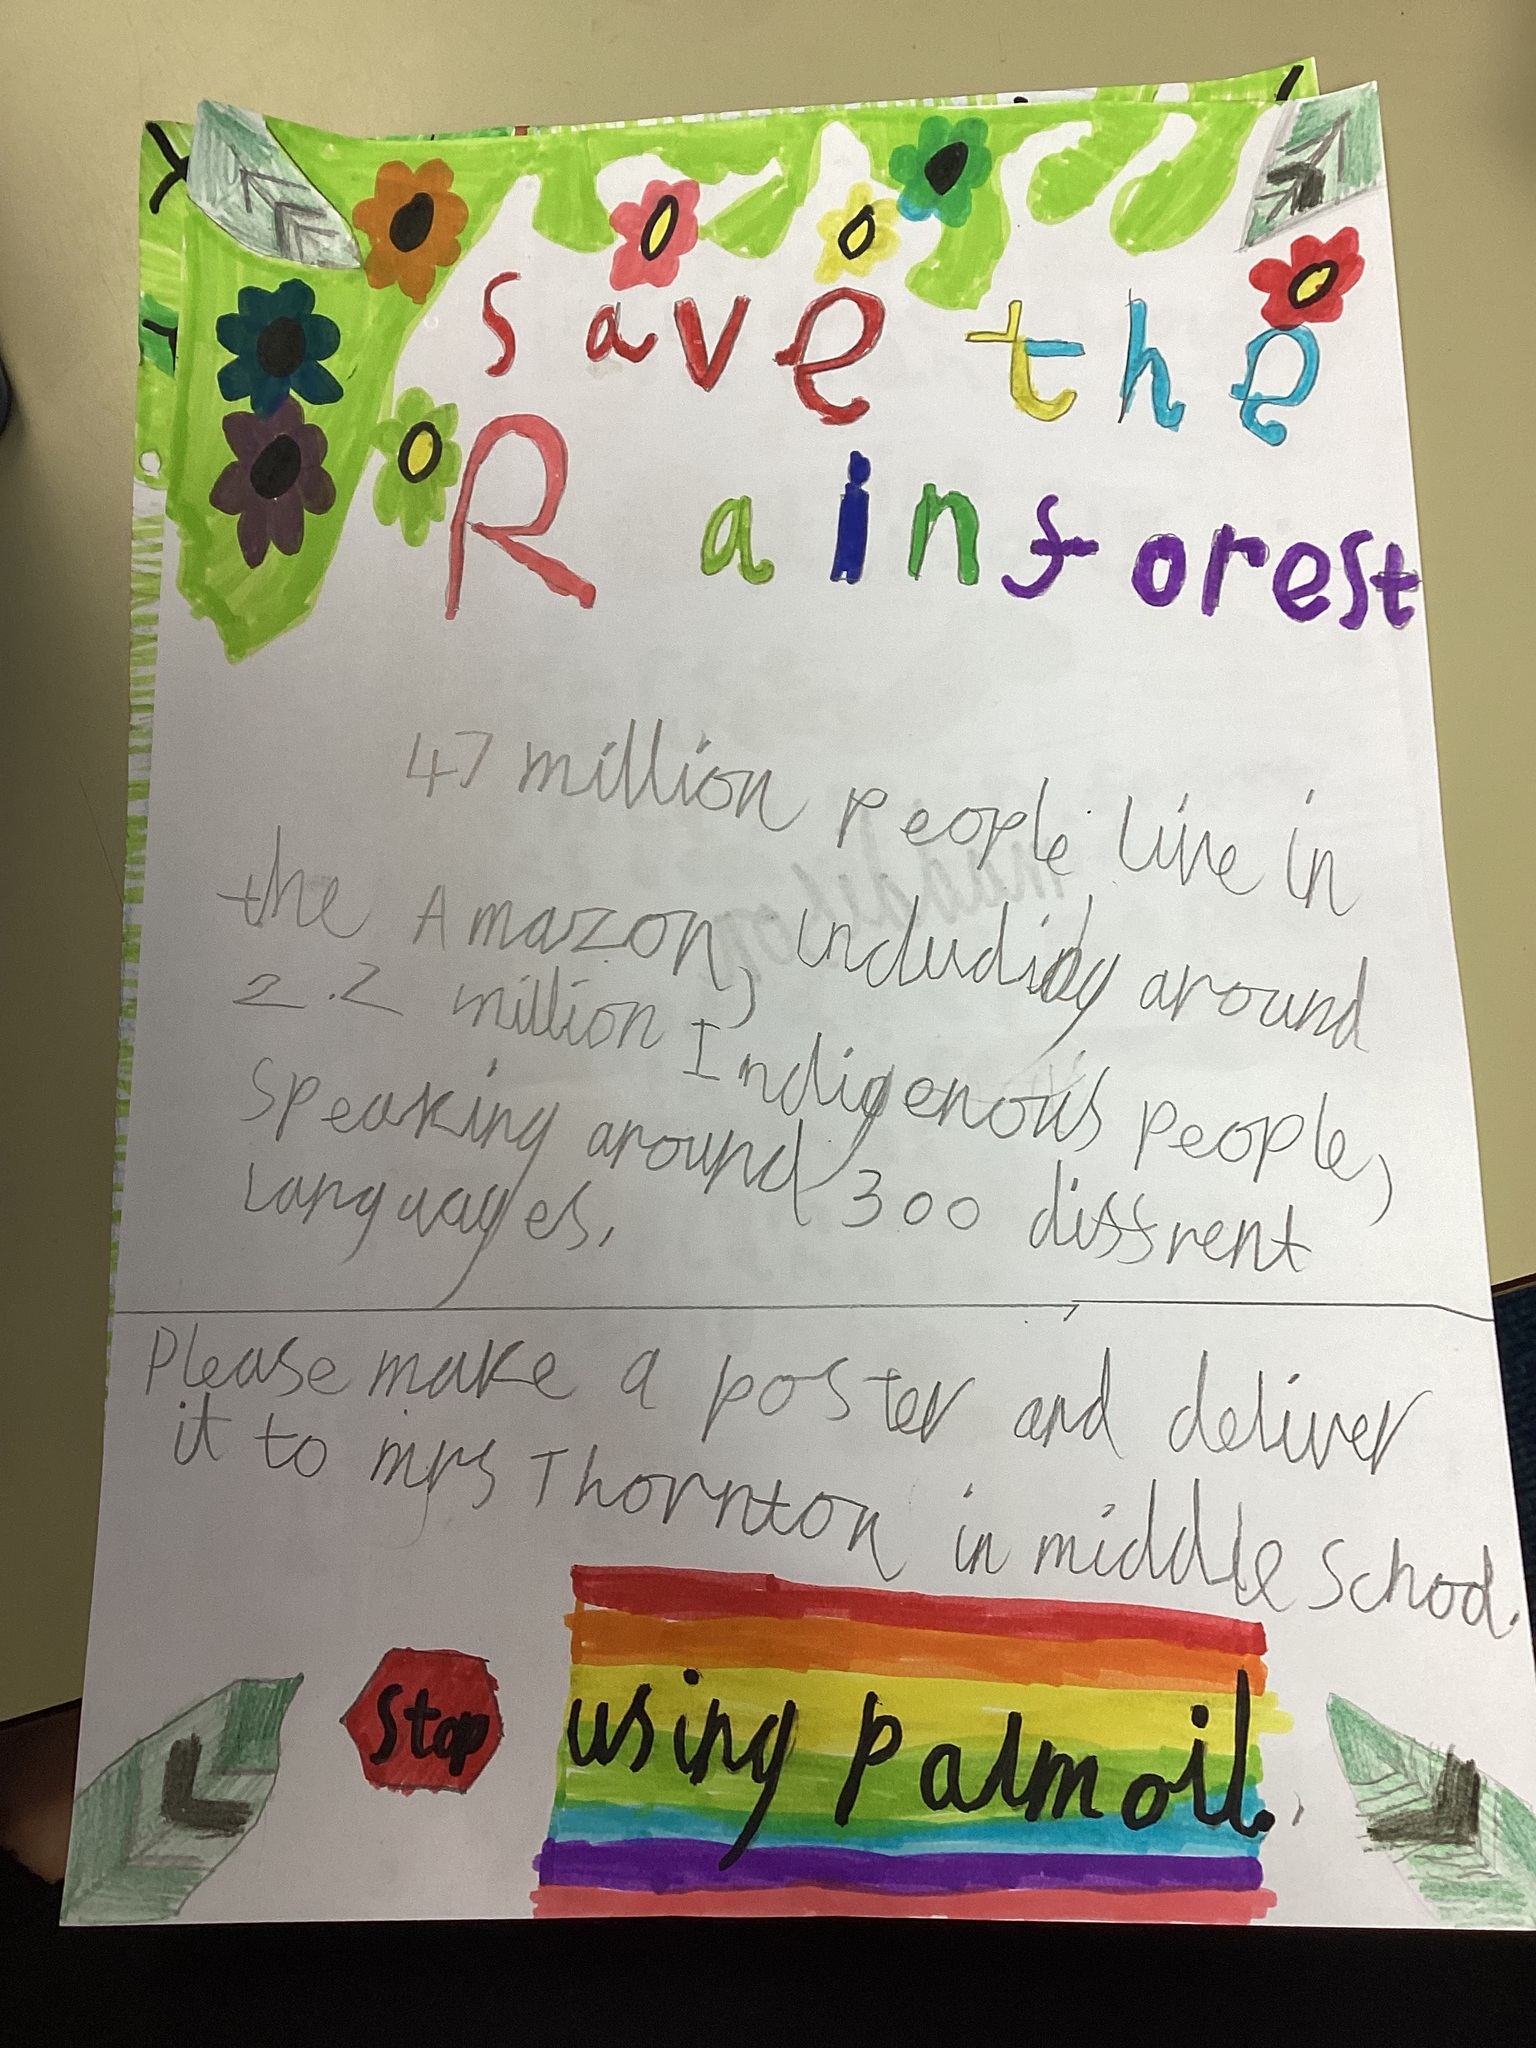 save the
Rainforest
47 million people live in
the Amazon, including around
2.2 million Indigenous people,
speaking around 300 diffrent
languages.
Please make a poster and deliver
it to mrs Thornton in middle school.
Stop using palm oil.